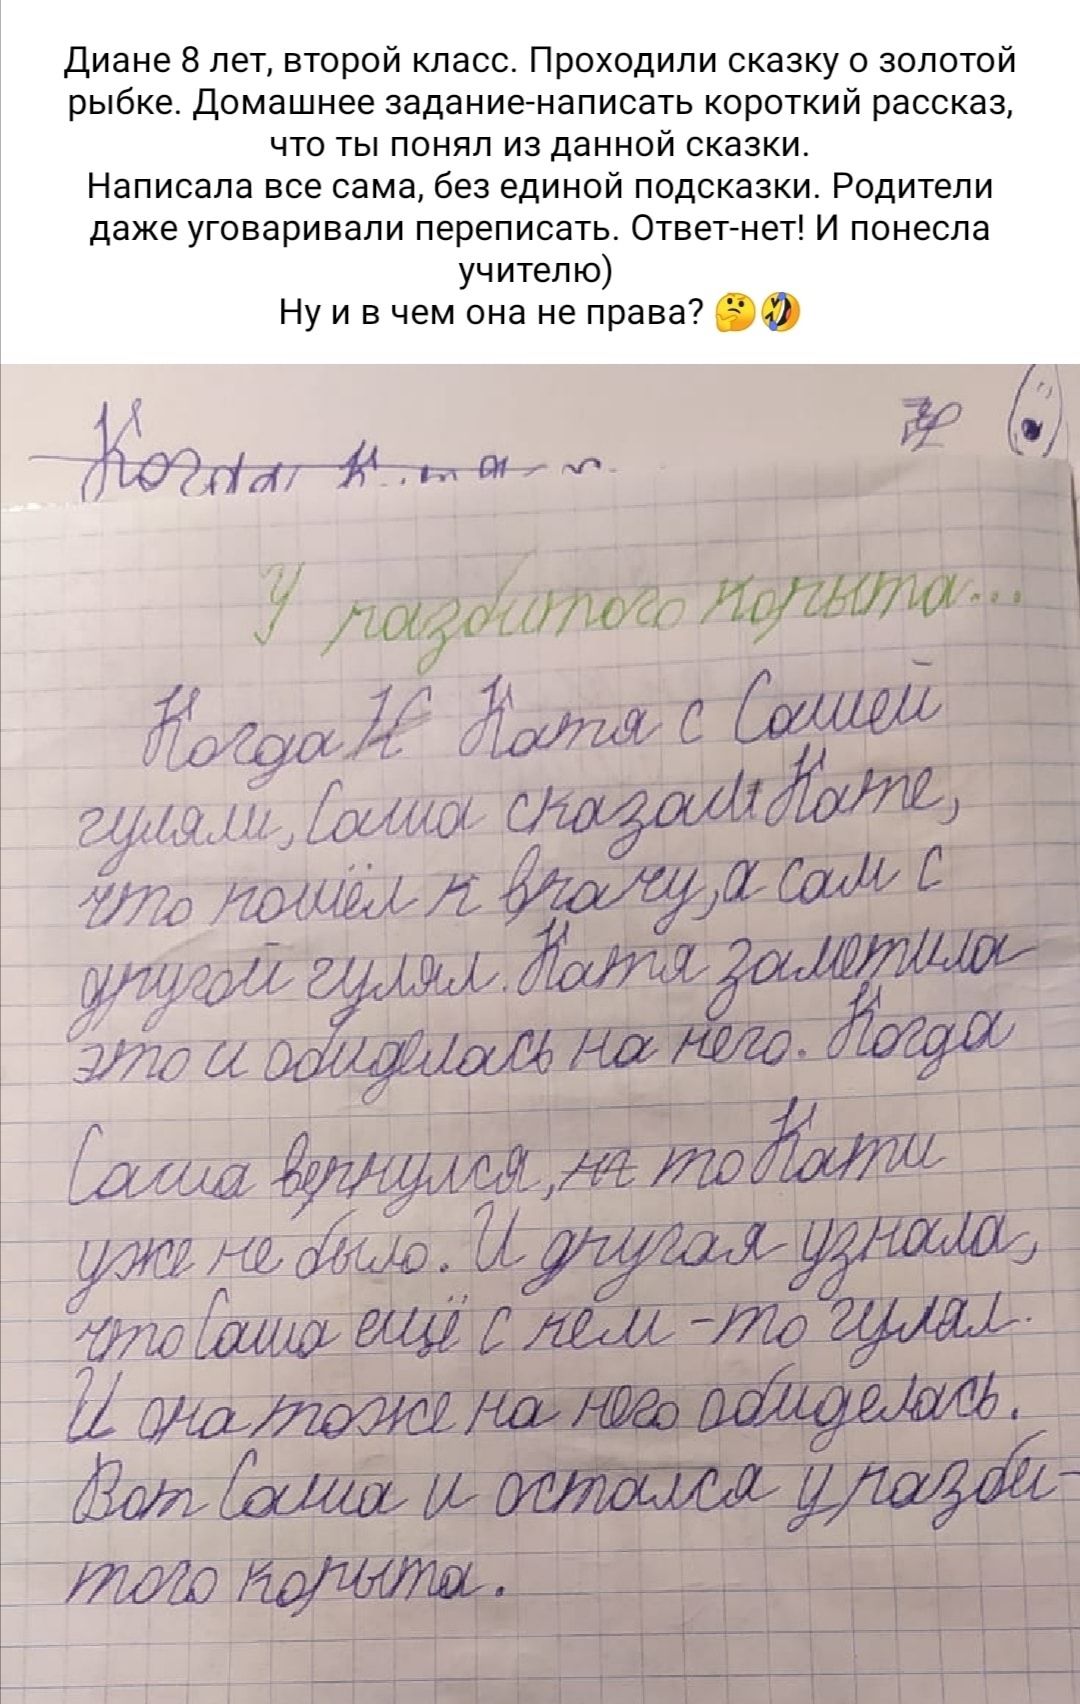 Диане 8 лет, второй класс. Проходили сказку о золотой
рыбке. Домашнее задание-написать короткий рассказ,
что ты понял из данной сказки.
Написала все сама, без единой подсказки. Родители
даже уговаривали переписать. Ответ-нет! И понесла
учителю)
Ну и в чем она не права? 🤔🤣
Когда
У разбитого корыта...
Когда К Катя с Сашей
гуляли, Саша сказал Кате,
что пошёл к врачу, а сам с
другой гулял. Катя заметила
это и обиделась на него. Когда
Саша вернулся, то Кати
уже не было. И другая узнала,
что Саша ещё с кем-то гулял.
И она тоже на него обиделась.
Вот Саша и остался у разби-
того корыта.